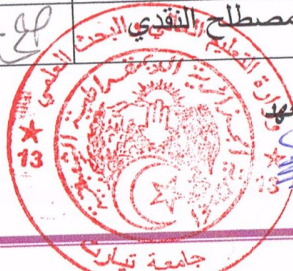 مصطلح النقدي
وزارة التعليم العالي والبحث العلمي
الجمهورية الجزائرية الديمقراطية الشعبية
13
13
جامعة تيارت